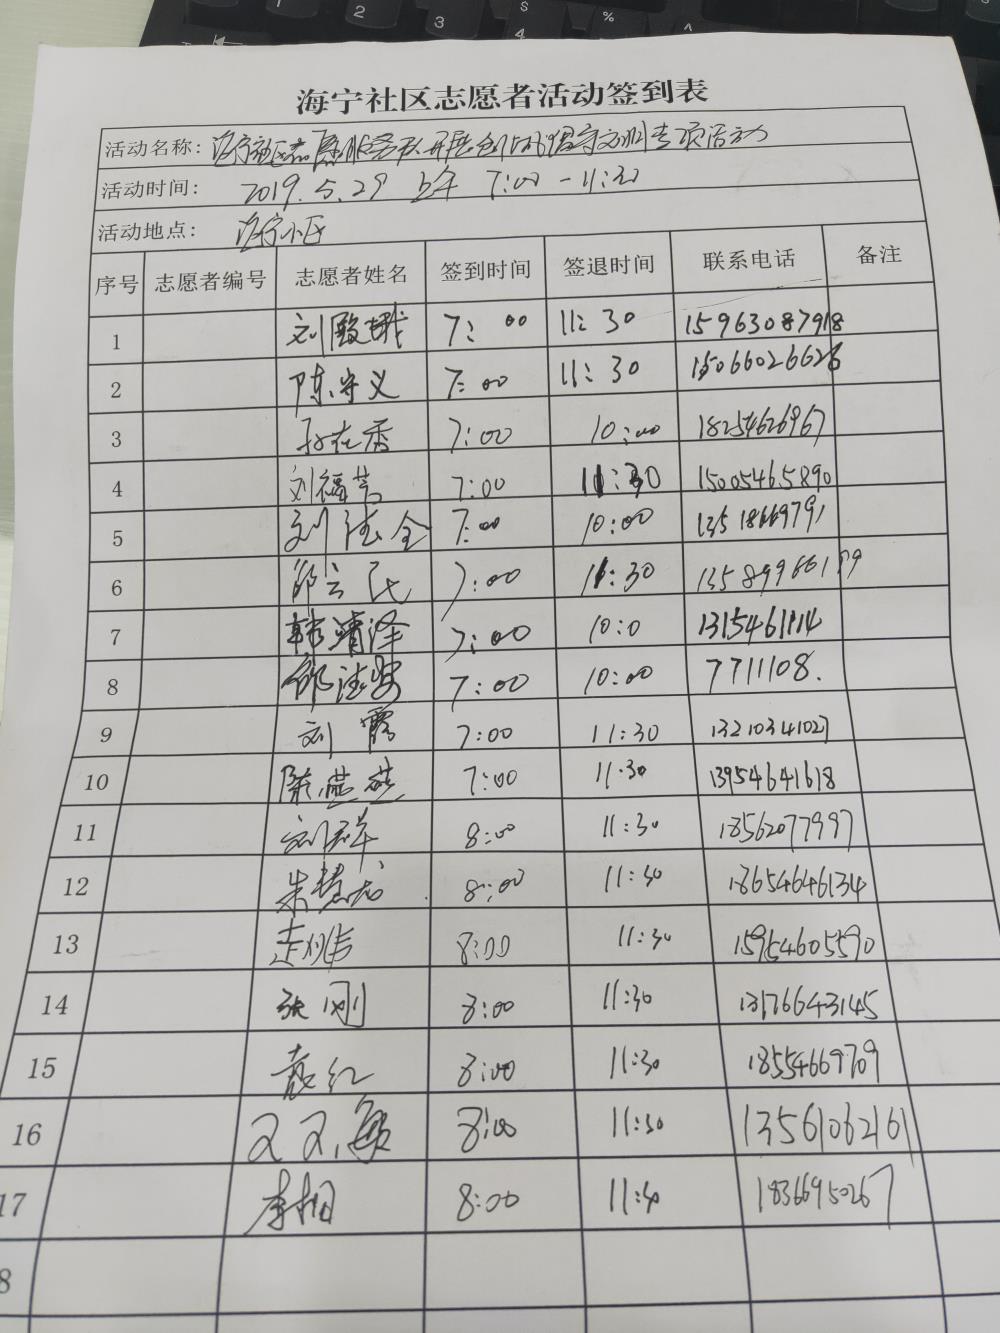 海宁社区志愿者活动签到表
活动名称：海宁社区志愿服务队开展创城倡导文明专项活动
活动时间： 2019.5.29 上午 7:00-11:30
活动地点： 海宁小区
序号 志愿者编号 志愿者姓名 签到时间 签退时间 联系电话 备注
1 刘殿娥 7:00 11:30 15963087918
2 陈守义 7:00 11:30 15066026628
3 孙在香 7:00 10:00 18254626967
4 刘福芳 7:00 11:30 15005465890
5 刘法全 7:00 10:00 13518669791
6 邵云民 7:00 11:30 13589966199
7 韩清泽 7:00 10:0 1315461114
8 邵法安 7:00 10:00 7711108.
9 刘霞 7:00 11:30 13210341027
10 陈燕燕 7:00 11:30 13954641618
11 刘群 8:00 11:30 18562077997
12 朱慧龙 8:00 11:30 18654646134
13 8:00 11:30 15954605590
14 张刚 8:00 11:30 13176643145
15 袁红 8:00 11:30 18554669709
16 8:00 11:30 13561062161
17 李相 8:00 11:30 18366950267
8